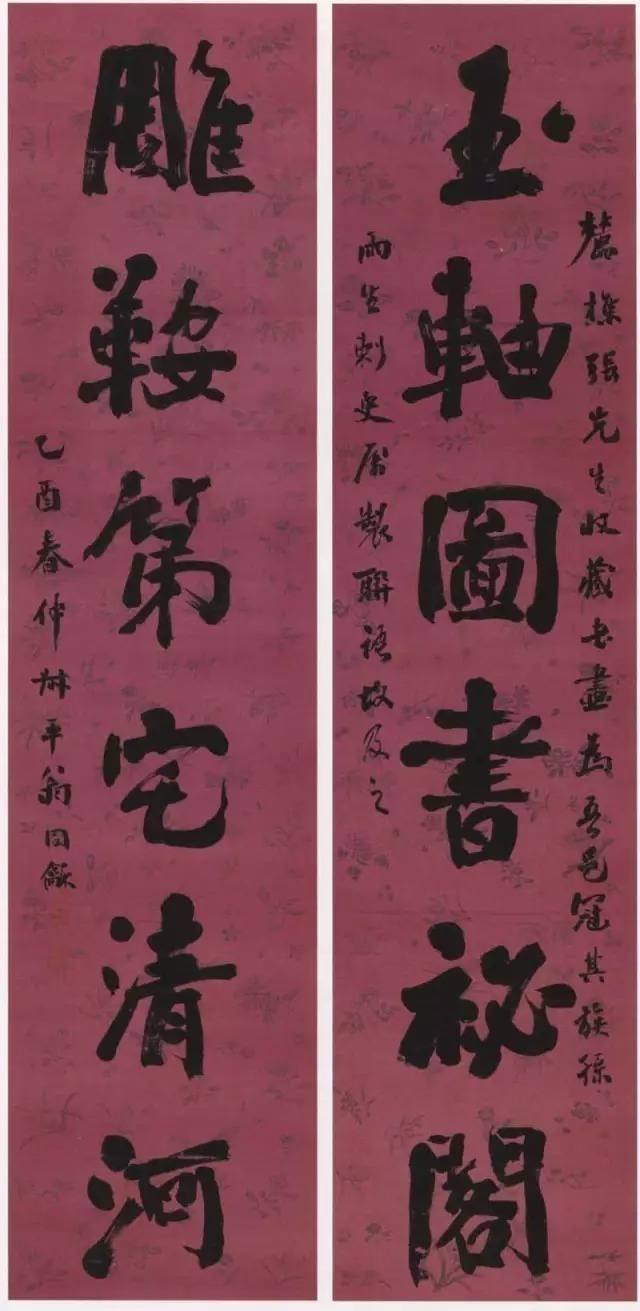 玉軸圖書祕閣
麓樵張先生收藏書畫為吾邑冠其族孫
雨生刺史属製聯語故及之
雕鞍第宅清河
乙酉春仲叔平翁同龢